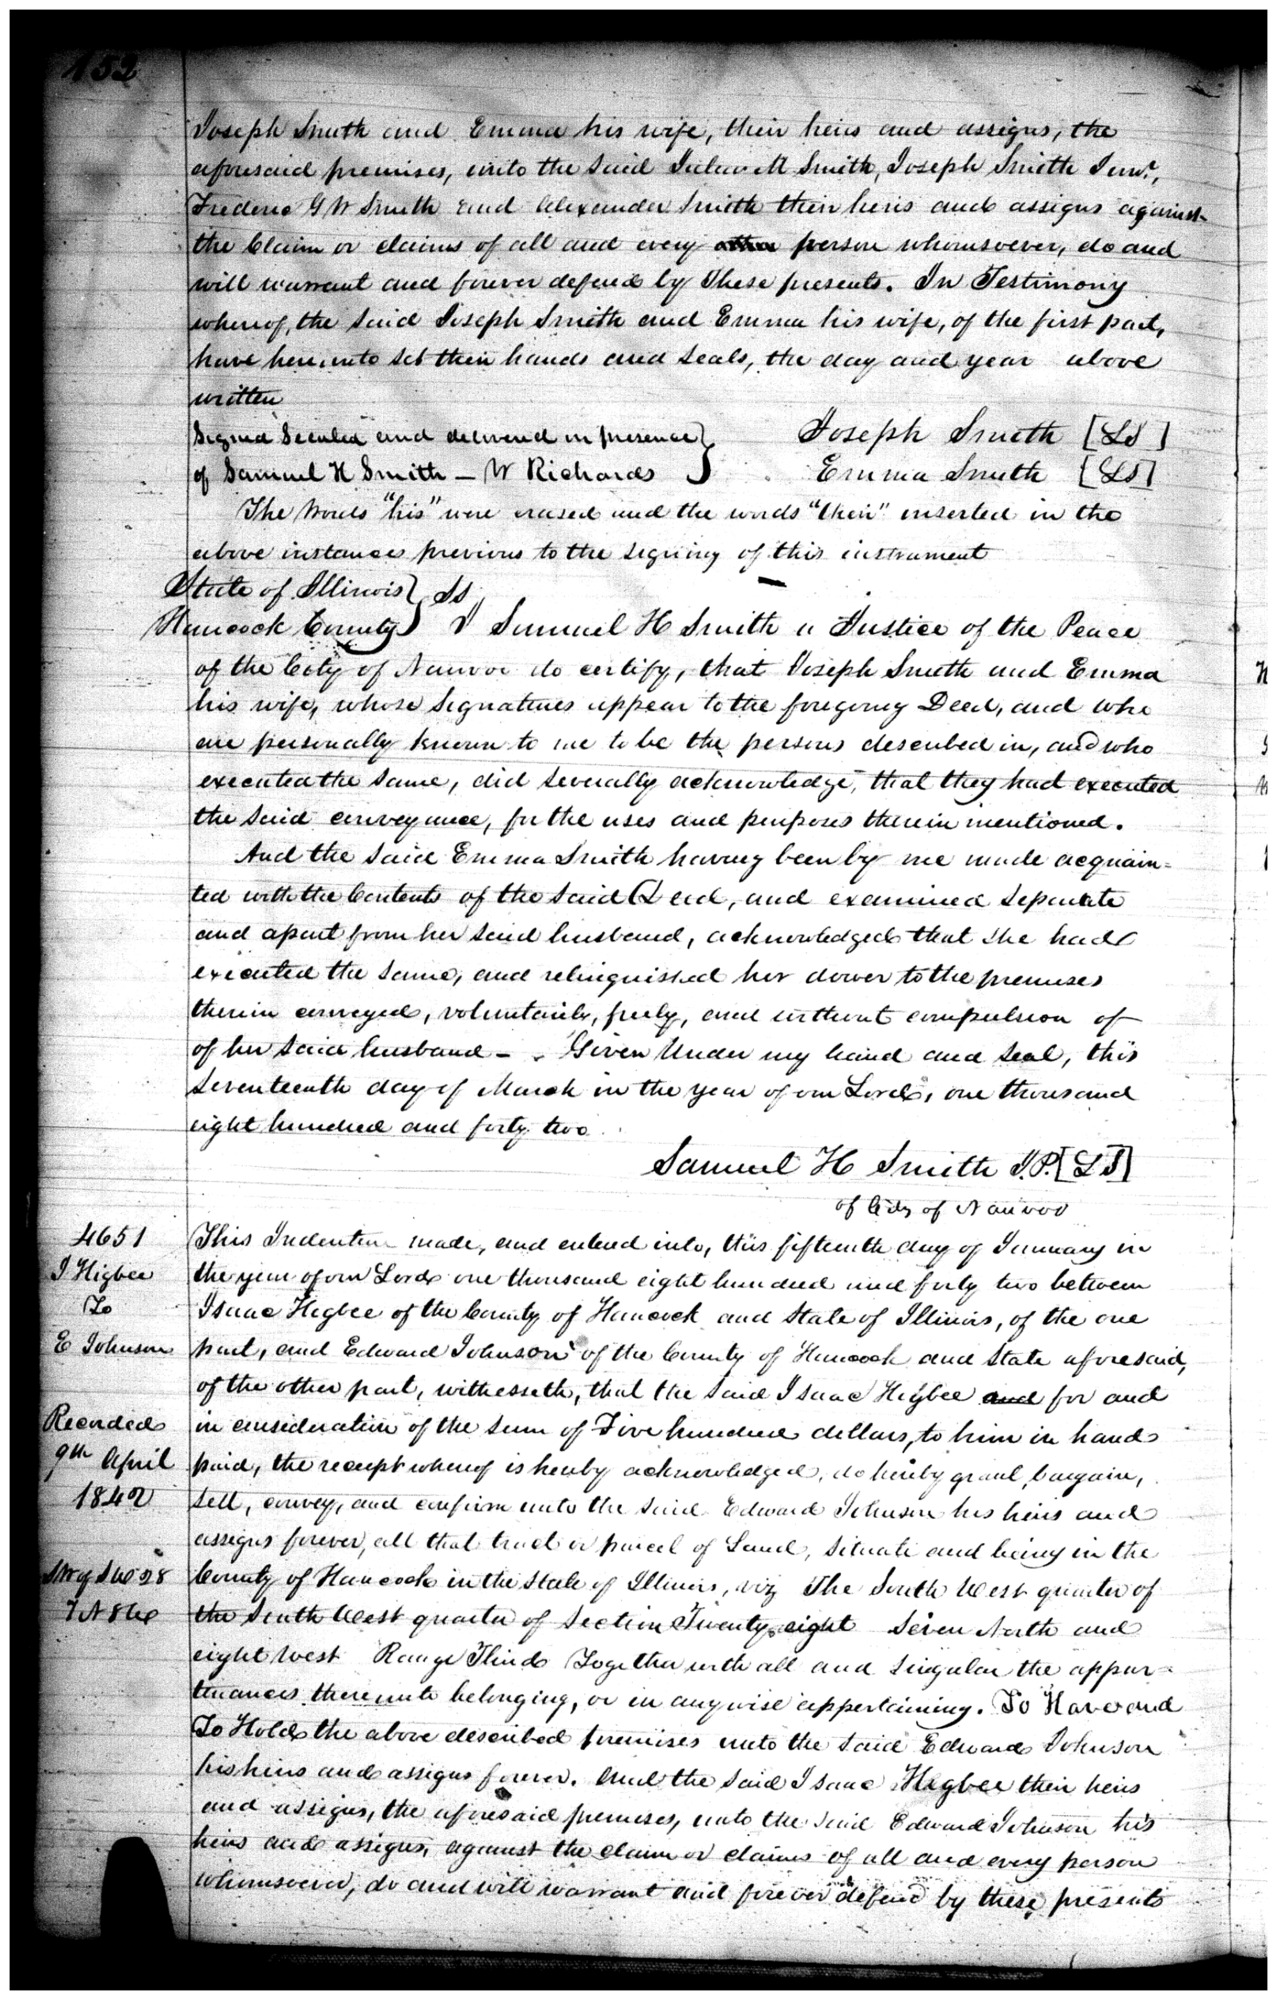 152
Joseph Smith and Emma his wife, their heirs and assigns, the
aforesaid premises, unto the said Julia M Smith, Joseph Smith Junr.,
Frederic G W Smith and Alexander Smith their heirs and assigns against
the Claim or claims of all and every other person whomsoever, do and
will warrant and forever defend by these presents. In Testimony
whereof, the said Joseph Smith and Emma his wife, of the first part,
have hereunto set their hands and seals, the day and year above
written
Signed Sealed and delivered in presence
of Samuel H Smith — W Richards
Joseph Smith [LS]
Emma Smith [LS]
The words "his" were erased and the words "their" inserted in the
above instances previous to the signing of this instrument
State of Illinois } Ss
Hancock County } I Samuel H Smith a Justice of the Peace
of the City of Nauvoo do certify, that Joseph Smith and Emma
his wife, whose Signatures appear to the foregoing Deed, and who
are personally known to me to be the persons described in, and who
executed the same, did severally acknowledge, that they had executed
the said conveyance, for the uses and purposes therein mentioned.
And the said Emma Smith having been by me made acquain=
ted with the Contents of the said Deed, and examined separate
and apart from her said husband, acknowledged that she had
executed the same, and relinquished her dower to the premises
therein conveyed, voluntarily, freely, and without compulsion of
of her said husband — . Given Under my hand and seal, this
seventeenth day of March in the year of our Lord, one thousand
eight hundred and forty two
Samuel H Smith J.P. [LS]
of City of Nauvoo
4651
I Higbee
To
E Johnson
Recorded
9th April
1842
SWq SW 28
7N 8W
This Indenture made, and entered into, this fifteenth day of January in
the year of our Lord one thousand eight hundred and forty two between
Isaac Higbee of the County of Hancock and State of Illinois, of the one
part, and Edward Johnson of the County of Hancock and State aforesaid,
of the other part, witnesseth, that the said Isaac Higbee and for and
in consideration of the sum of Five hundred dollars, to him in hand
paid, the receipt whereof is hereby acknowledged, do hereby grant, bargain,
sell, convey, and confirm unto the said Edward Johnson his heirs and
assigns forever, all that tract or parcel of Land, situate and being in the
County of Hancock in the State of Illinois, viz The South West quarter of
the South West quarter of Section Twenty eight Seven North and
eight West Range Third Together with all and singular the appur=
tenances thereunto belonging, or in anywise appertaining. To Have and
To Hold the above described premises unto the said Edward Johnson
his heirs and assigns forever. And the said Isaac Higbee their heirs
and assigns, the aforesaid premises, unto the said Edward Johnson his
heirs and assigns, against the claim or claims of all and every person
whomsoever, do and will warrant and forever defend by these presents